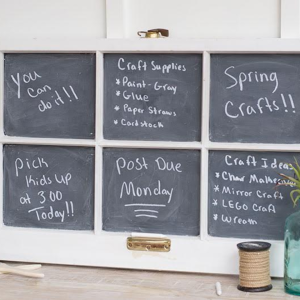 You
can
do it!!
Craft Supplies
* Paint-Gray
* Glue
* Paper Straws
* Cardstock
Spring
Crafts!!
Pick
Kids Up
at 3:00
Today!!
Post Due
Monday
Craft Ideas
* Mirror Craft
* LEGO Craft
* Wreath